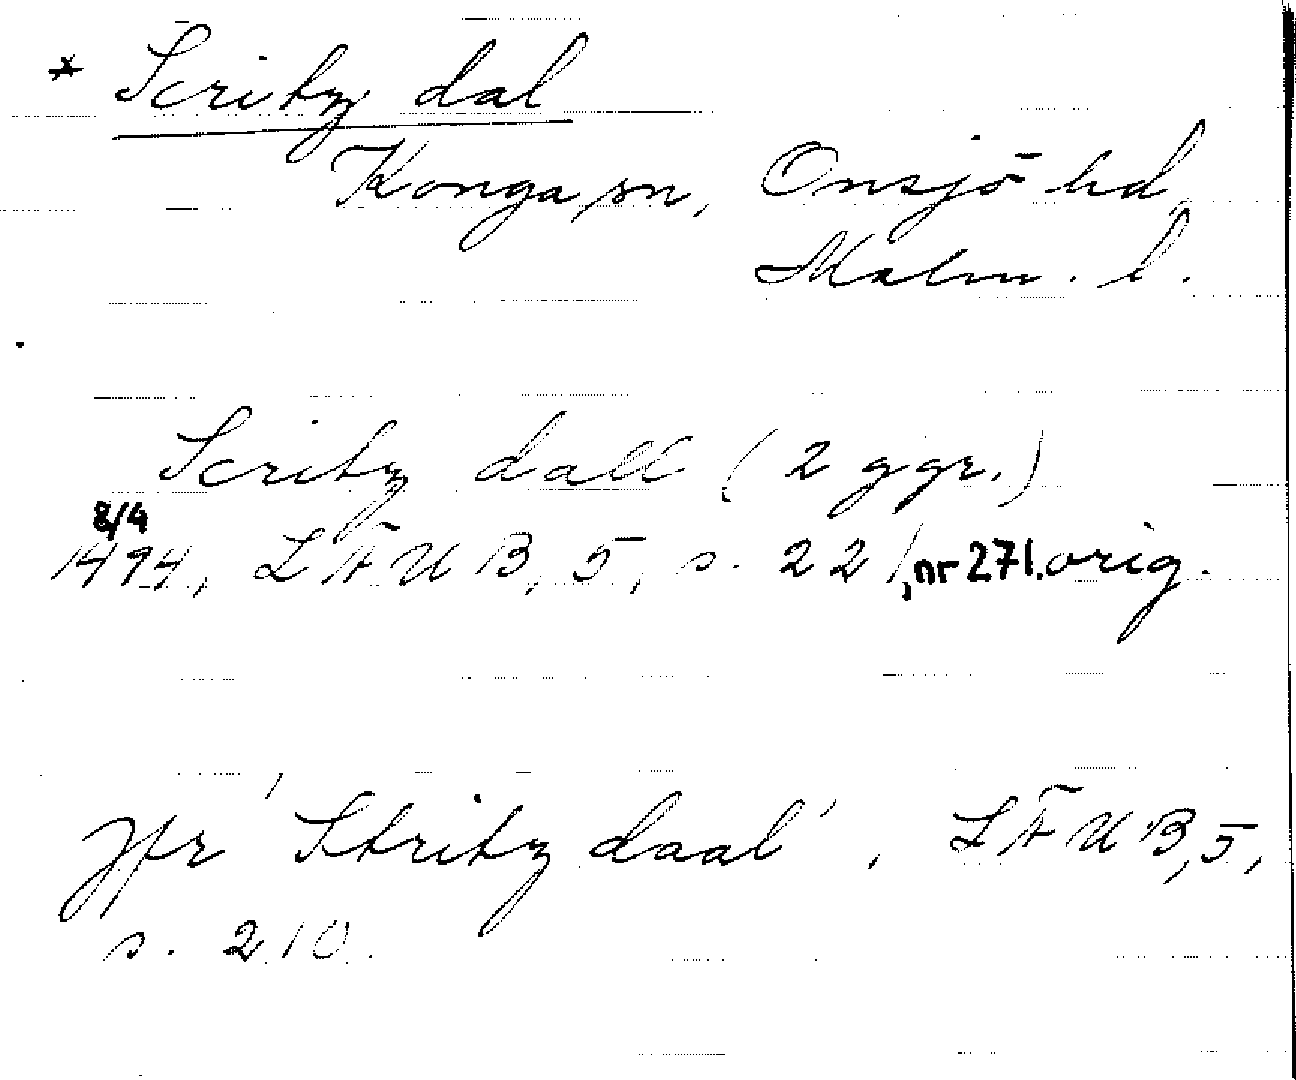 * Scritz dal
Konga sn, Onsjö hd
Malm. l.
Scritz dall (2 ggr.)
8/4
1494, LÄUB, 5, s. 221, nr 271. orig.
Jfr 'Stritz daal', LÄUB, 5,
s. 210.